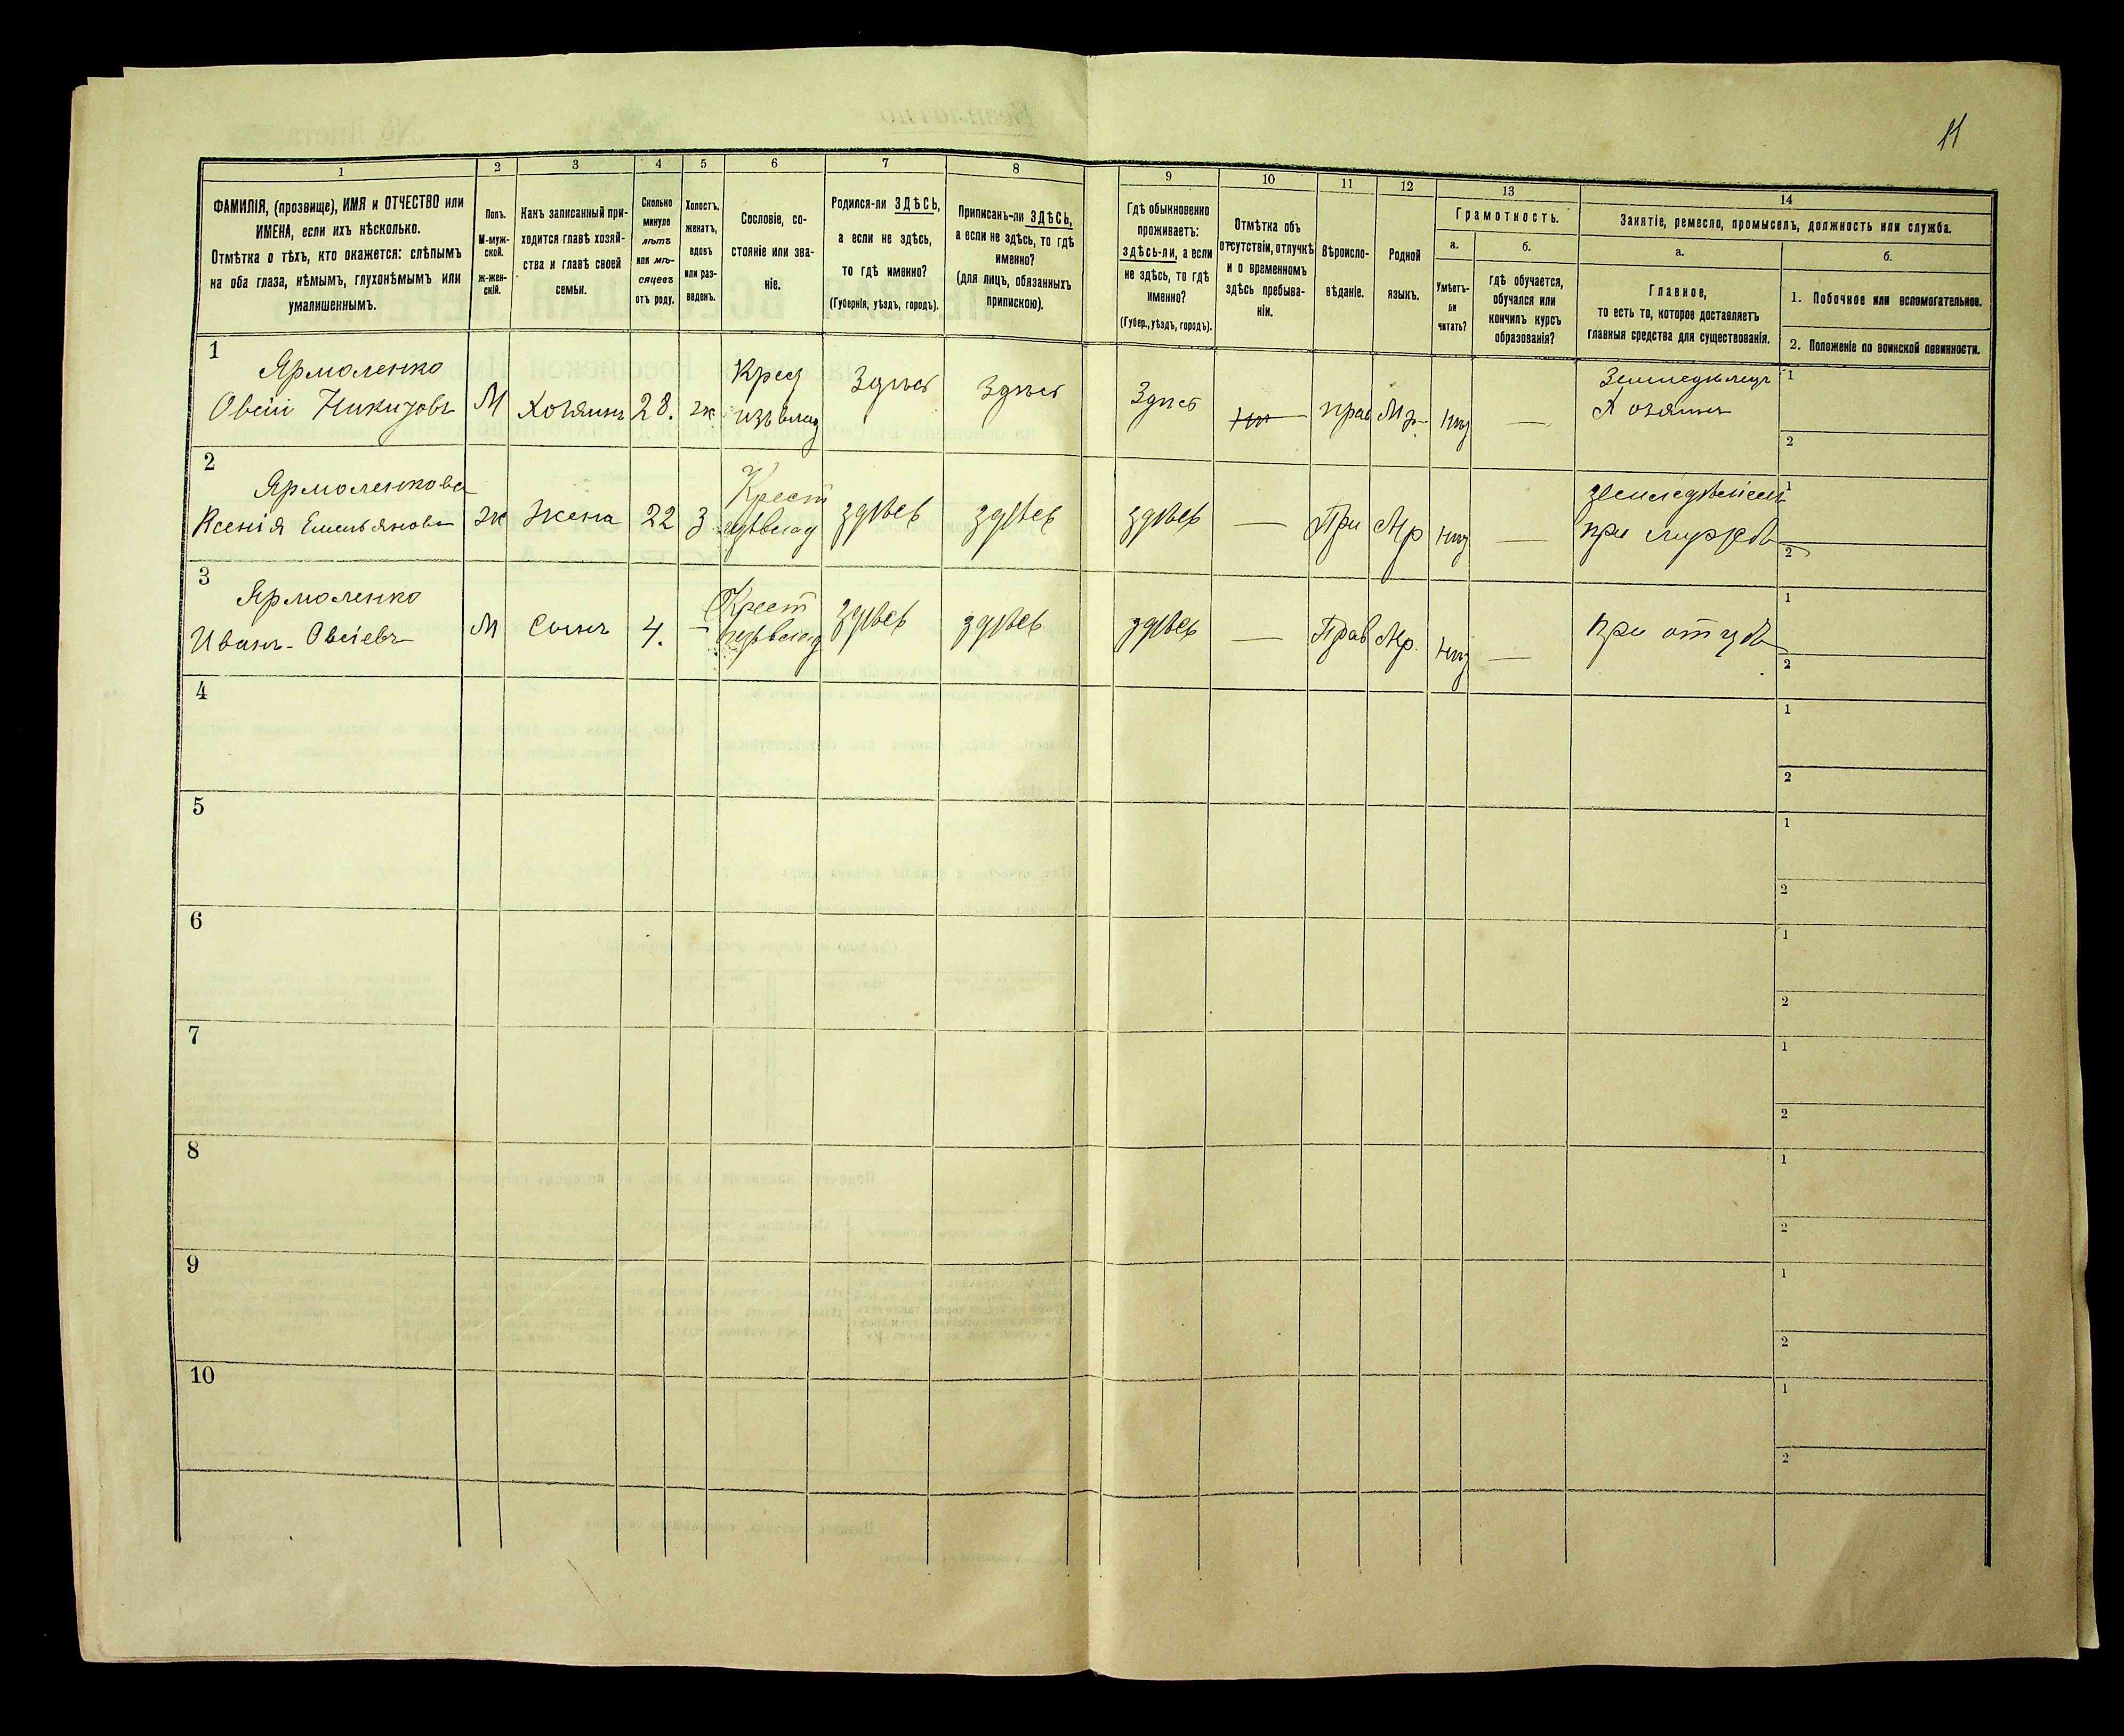 11
1
2
3
4
5
6
7
8
9
10
11
12
13
14
ФАМИЛІЯ, (прозвище), ИМЯ и ОТЧЕСТВО или
ИМЕНА, если ихъ нѣсколько.
Отмѣтка о тѣхъ, кто окажется: слѣпымъ
на оба глаза, нѣмымъ, глухонѣмымъ или
умалишеннымъ.
Полъ.
М-муж-
ской.
ж-жен-
скій.
Какъ записанный при-
ходится главѣ хозяй-
ства и главѣ своей
семьи.
Сколько
минуло
лѣтъ
или мѣ-
сяцевъ
отъ роду.
Холостъ,
женатъ,
вдовъ
или раз-
веденъ.
Сословіе, со-
стояніе или зва-
ніе.
Родился-ли ЗДѢСЬ,
а если не здѣсь,
то гдѣ именно?
(Губернія, уѣздъ, городъ).
Приписанъ-ли ЗДѢСЬ,
а если не здѣсь, то гдѣ
именно?
(для лицъ, обязанныхъ
припискою).
Гдѣ обыкновенно
проживаетъ:
здѣсь-ли, а если
не здѣсь, то гдѣ
именно?
(Губер., уѣздъ, городъ).
Отмѣтка объ
отсутствіи, отлучкѣ
и о временномъ
здѣсь пребыва-
ніи.
Вѣроиспо-
вѣданіе.
Родной
языкъ.
Грамотность.
а.
Умѣетъ-
ли
читать?
б.
гдѣ обучается,
обучался или
кончилъ курсъ
образованія?
Занятіе, ремесло, промыселъ, должность или служба.
а.
Главное,
то есть то, которое доставляетъ
главныя средства для существованія.
б.
1. Побочное или вспомогательное.
2. Положеніе по воинской повинности.
1
Ярмоленко
Овсій
М
Хозяинъ
28.
ж
Здѣсь
Здѣсь
Здѣсь
прав
Земледѣлецъ
Хозяинъ
1
2
2
Ярмоленкова
Ксенія Емельянова
ж
Жена
22
З
Крест
здѣсь
здѣсь
здѣсь
—
Мр
—
при
1
2
3
Ярмоленко
Иванъ - Овсіевъ
М
Сынъ
4.
—
Крест
здѣсь
здѣсь
здѣсь
—
Прав
Мр.
—
при отцѣ
1
2
4
1
2
5
1
2
6
1
2
7
1
2
8
1
2
9
1
2
10
1
2